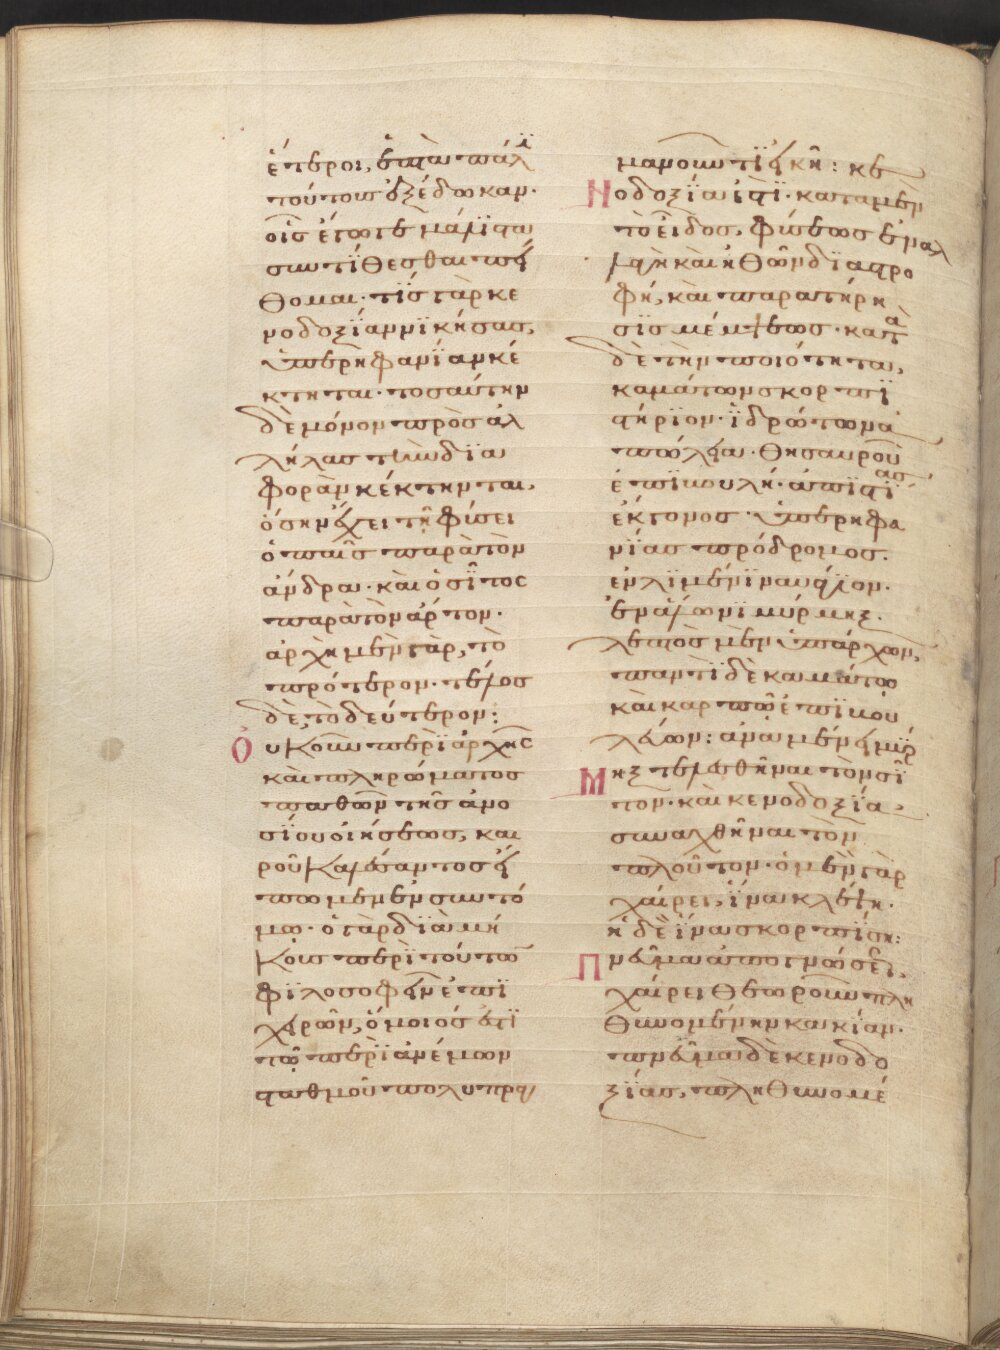 ἕτεροι, ἑπτὰ πάλϊ
τούτους ἐξέδωκαν·
οἷς ἔγωγε μάλϊστα
συντίθεσθαι πεί
θομαι· τίς γὰρ κε
νοδοξϊαν νϊκήσας,
ὑπερηφανΐαν κέ
κτηται· τοσαύτην
δὲ μόνον πρὸς ἀλ
λήλας τὴν δϊα
φορὰν κέκτηνται,
ὅσην ἔχει τῇ φύσει
ὁ παῖς παρὰ τὸν
ἄνδρα· καὶ ὁ σῖτος
παρὰ τὸν ἄρτον·
ἀρχὴ μὲν γὰρ, τὸ
πρότερον· τέλος
δὲ, τὸ δεύτερον:
Οὐκοῦν περὶ ἀρχῆς
καὶ πληρώματος
παθῶν τῆς ἀνο
σΐου οἰήσεως, και
ροῦ καλέσαντος εἴ
πωμεν ἐν συντό
μῳ· ὁ γὰρ δϊὰ μή
κους περὶ τούτων
φϊλοσοφεῖν ἐπϊ
χειρῶν, ὅμοιός ἐστϊ
τῷ περὶ ἀνέμων
σταθμοῦ πολυπρα
μανοῦντϊ εἰκῆ: κε
Νοδοξΐα ἐστϊ· κατα μὲν
τὸ εἶδος, φύσεως ἐναλ
λαγὴ καὶ ἠθῶν δϊαστρο
φή, καὶ παρατήρη
σϊς μέμψεως· κατὰ
δὲ τὴν ποιότητα,
καμάτων σκορπϊ
στήρϊον· ἱδρώτων ἀ
πώλεια· θησαυροῦ
ἐπϊβουλή· ἀπϊστΐας
ἔκγονος· ὑπερηφα
νΐας πρόδρομος·
ἐν λϊμένϊ ναυάγϊον·
ἐν ἅλωνϊ μύρμηξ·
λεπτὸς μὲν ὑπάρχων,
παντὶ δὲ καμάτῳ
καὶ καρπῷ ἐπϊβου
λεύων: ἀναμένει μύρ
Μηξ τελεσθῆναι τὸν σῖ
τον· καὶ κενοδοξΐα
συναχθῆναι τὸν
πλοῦτον· ὁ μὲν γὰρ
χαίρει, ἵνα κλέψη·
ἡ δὲ ἵνα σκορπΐση:
Πνεῦμα ἀπογνώσεως,
χαίρει θεωροῦν πλη
θυνομένην κακΐαν·
πνεῦμα δὲ κενοδο
ξΐας, πληθυνομέ